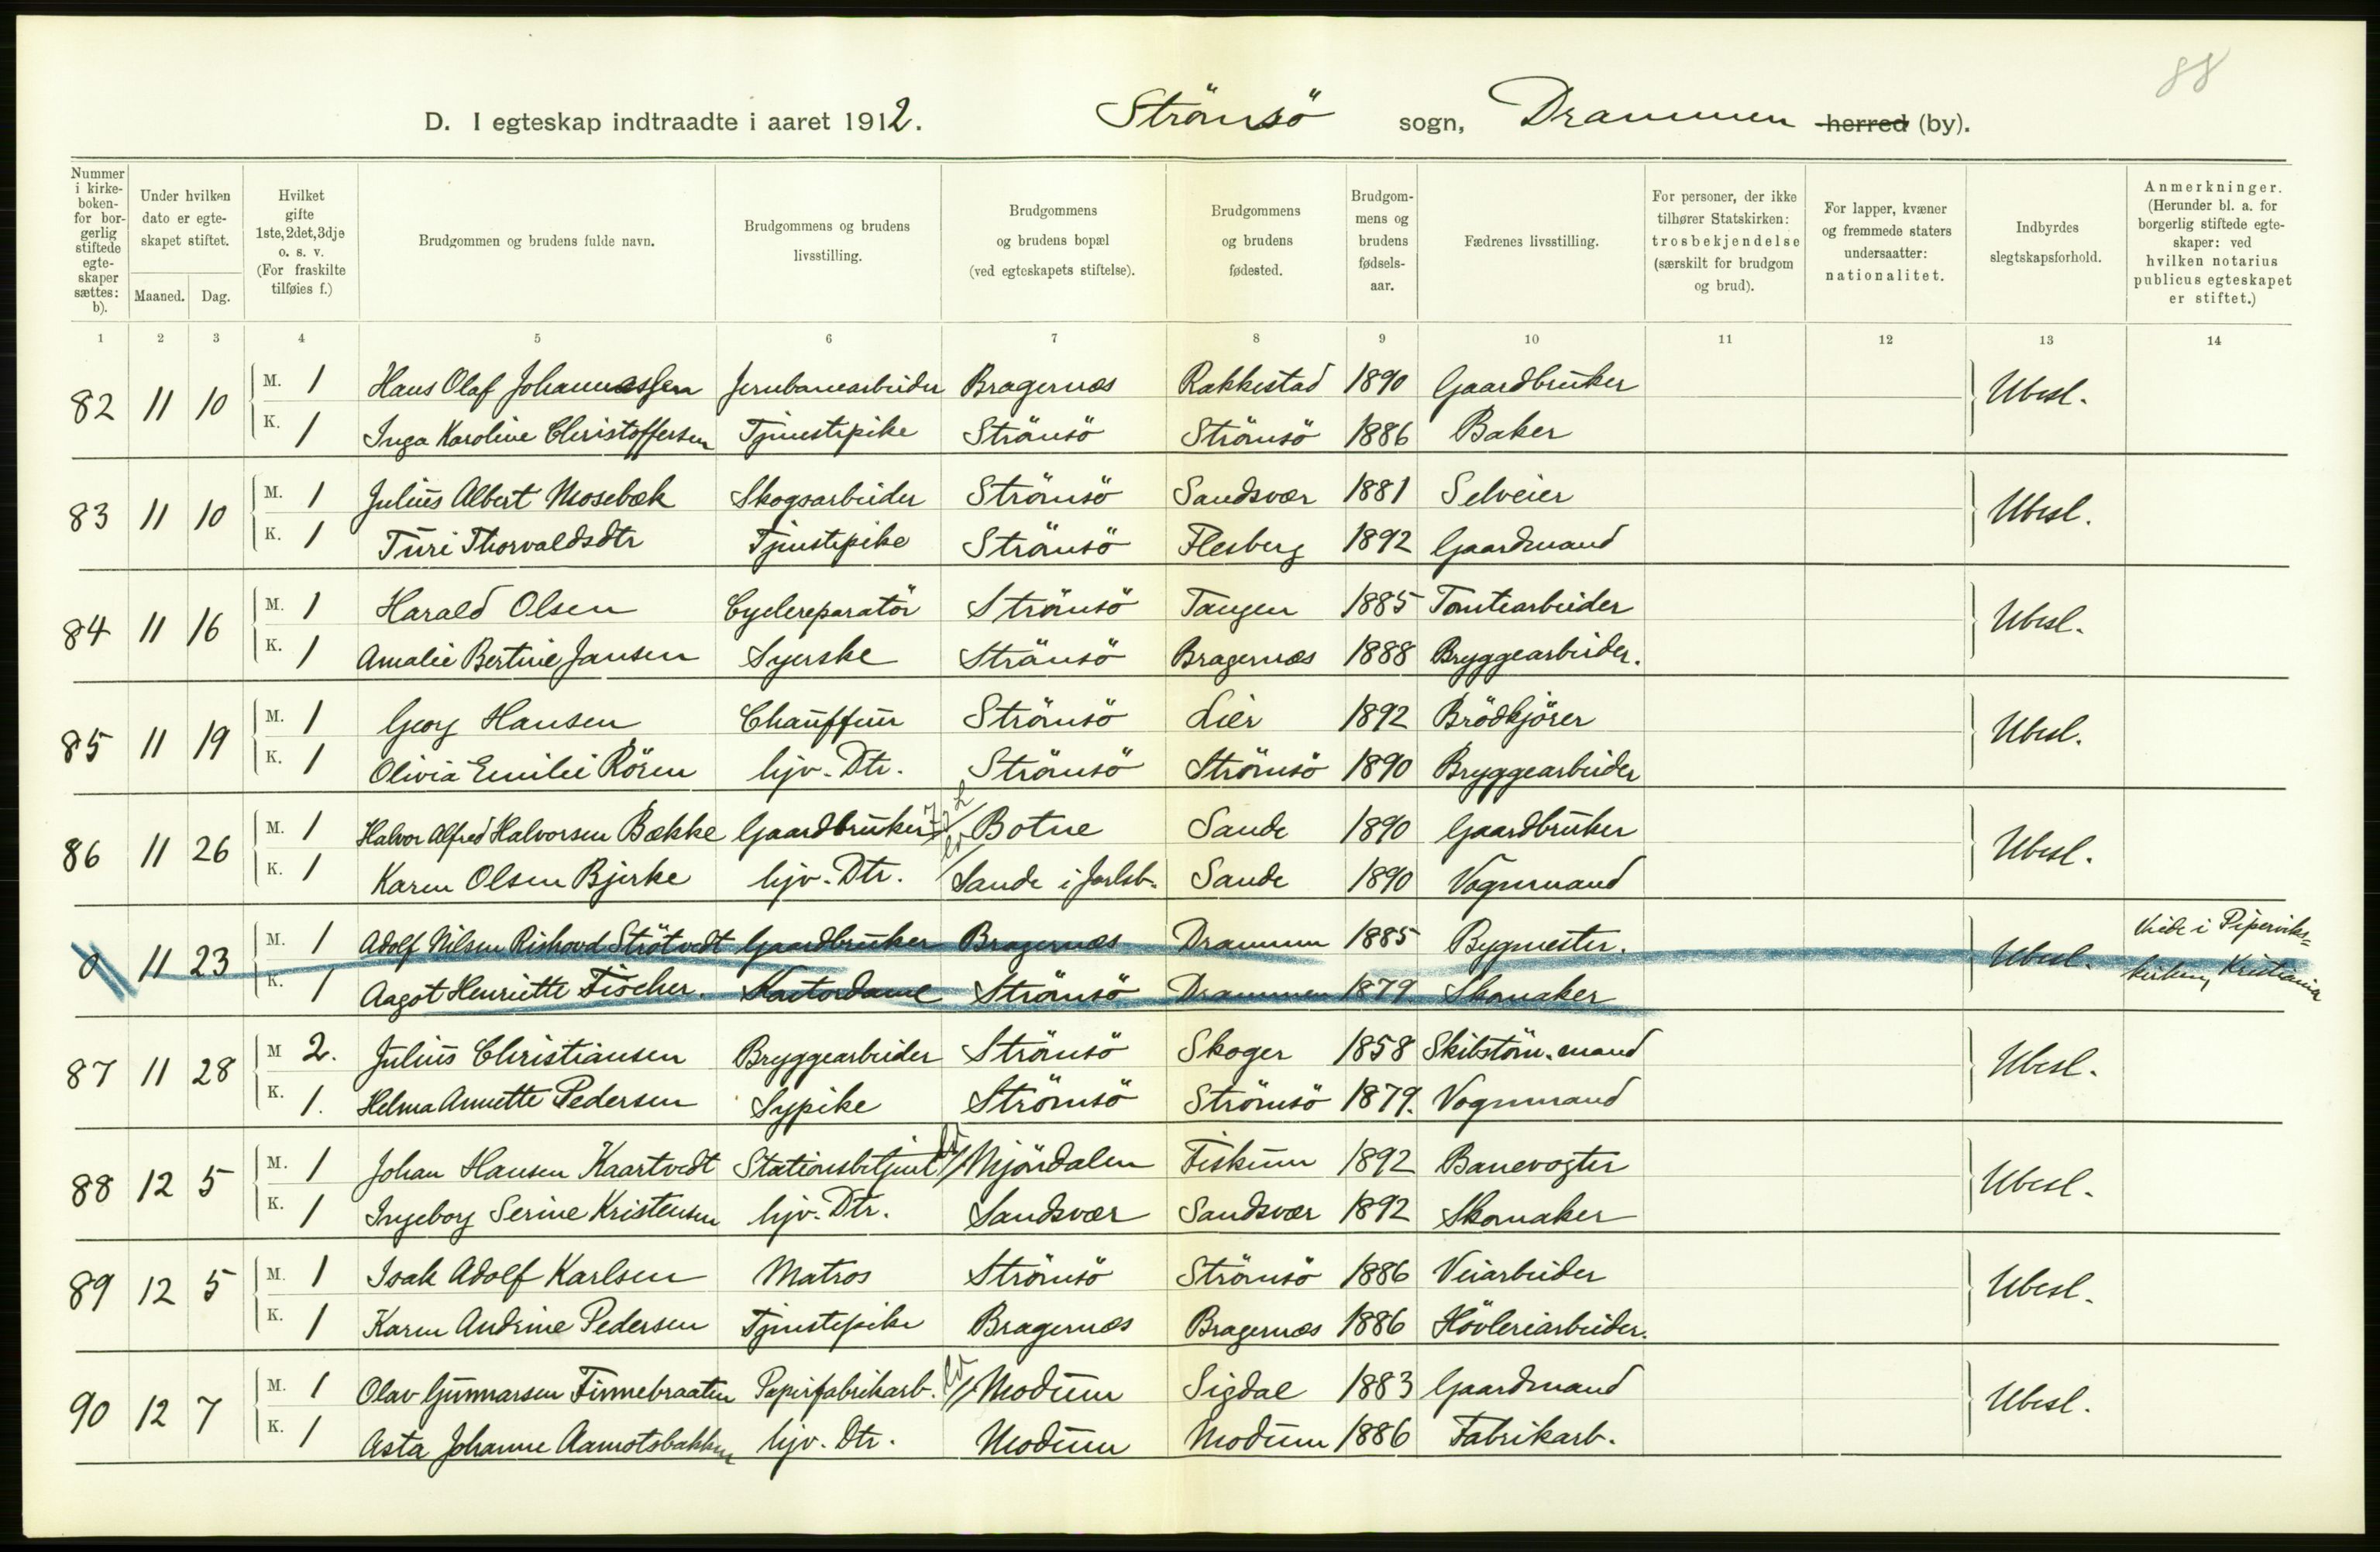 88
D. I egteskap indtraadte i aaret 1912. Strömsö sogn, Drammen herred (by).
Nummer i kirkeboken for borgerlig stiftede egteskaper sættes: b).
Under hvilken dato er egteskapet stiftet.
Maaned. Dag.
Hvilket gifte 1ste, 2det, 3dje o. s. v. (For fraskilte tilføies f.)
Brudgommen og brudens fulde navn.
Brudgommens og brudens livsstilling.
Brudgommens og brudens bopæl (ved egteskapets stiftelse).
Brudgommens og brudens fødested.
Brudgommens og brudens fødselsaar.
Fædrenes livsstilling.
For personer, der ikke tilhører Statskirken: trosbekjendelse (særskilt for brudgom og brud).
For lapper, kvæner og fremmede staters undersaatter: nationalitet.
Indbyrdes slegtskapsforhold.
Anmerkninger. (Herunder bl. a. for borgerlig stiftede egteskaper: ved hvilken notarius publicus egteskapet er stiftet.)
1 2 3 4 5 6 7 8 9 10 11 12 13 14
82 11 10 M. 1 Hans Olaf Johannessen Jernbanearbeider Bragernæs Rakkestad 1890 Gaardbruker Ubesl.
K. 1 Inga Karoline Christoffersen Tjenestepike Strömsö Strömsö 1886 Baker
83 11 10 M. 1 Julius Albert Mosebæk Skogsarbeider Strömsö Sandsvær 1881 Selveier Ubesl.
K. 1 Turi Thorvaldsdtr Tjenstepike Strömsö Flesberg 1892 Gaardmand
84 11 16 M. 1 Harald Olsen Cyclereparatör Strömsö Tangen 1885 Tomtearbeider Ubesl.
K. 1 Amalie Bertine Jansen Syerske Strömsö Bragernæs 1888 Bryggearbeider.
85 11 19 M. 1 Georg Hansen Chauffeur Strömsö Lier 1892 Brödkjörer Ubesl.
K. 1 Olivia Emilie Rören hjv. Dtr. Strömsö Strömsö 1890 Bryggearbeider
86 11 26 M. 1 Halvor Alfred Halvorsen Bække Gaardbruker Botne Sande 1890 Gaardbruker Ubesl.
K. 1 Karen Olsen Bjerke hjv. Dtr. Sande i Jarlsb. Sande 1890 Vognmand
0 11 23 M. 1 Adolf Nilsen Rishovd Strötvedt Gaardbruker Bragernæs Drammen 1885 Bygmester. Ubesl. Viede i Piperviks-
K. 1 Aagot Henriette Fischer. Kontordame Strömsö Drammen 1879 Skomaker kirken, Kristiania
87 11 28 M 2. Julius Christiansen Bryggearbeider Strömsö Skoger 1858 Skibstöm.mand Ubesl.
K. 1. Helma Annette Pedersen Sypike Strömsö Strömsö 1879. Vognmand
88 12 5 M. 1 Johan Hansen Kaartvedt Stationsbetjent Mjöndalen Fiskum 1892 Banevogter Ubesl.
K. 1 Ingeborg Serine Kristensen hjv. Dtr. Sandsvær Sandsvær 1892 Skomaker
89 12 5 M. 1 Isak Adolf Karlsen Matros Strömsö Strömsö 1886 Veiarbeider Ubesl.
K. 1 Karen Andrine Pedersen Tjenstepike Bragernæs Bragernæs 1886 Hövleriarbeider.
90 12 7 M. 1 Olav Gunnarsen Finnebraaten Papirfabrikarb. Modum Sigdal 1883 Gaardmand Ubesl.
K. 1 Asta Johanne Aamotsbakken hjv. Dtr. Modum Modum 1886 Fabrikarb.